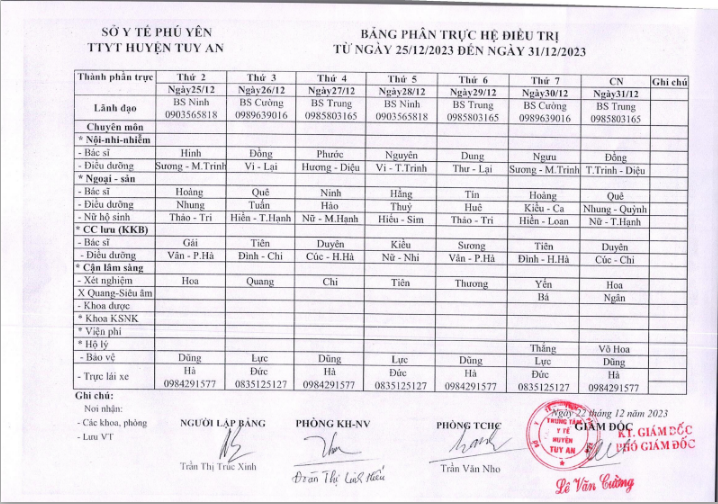 SỞ Y TẾ PHÚ YÊN
TTYT HUYỆN TUY AN
BẢNG PHÂN TRỰC HỆ ĐIỀU TRỊ
TỪ NGÀY 25/12/2023 ĐẾN NGÀY 31/12/2023
Thành phần trực Thứ 2 Thứ 3 Thứ 4 Thứ 5 Thứ 6 Thứ 7 CN Ghi chú
Ngày25/12 Ngày26/12 Ngày27/12 Ngày28/12 Ngày29/12 Ngày30/12 Ngày31/12
Lãnh đạo BS Ninh BS Cường BS Trung BS Ninh BS Trung BS Cường BS Trung
0903565818 0989639016 0985803165 0903565818 0985803165 0989639016 0985803165
Chuyên môn
* Nội-nhi-nhiễm
- Bác sĩ Hinh Đồng Phước Nguyên Dung Ngưu Đồng
- Điều dưỡng Sương - M.Trinh Vi - Lại Hương - Diệu Vi - T.Trinh Thư - Lại Sương - M.Trinh T.Trinh - Diệu
* Ngoại - sản
- Bác sĩ Hoàng Quê Ninh Hằng Tín Hoàng Quê
- Điều dưỡng Nhung Tuấn Hảo Thuý Huê Kiều - Ca Nhung - Quỳnh
- Nữ hộ sinh Thảo - Tri Hiền - T.Hạnh Nữ - M.Hạnh Hiếu - Sim Thảo - Tri Hiền - Loan Nữ - T.Hạnh
* CC lưu (KKB)
- Bác sĩ Gái Tiên Duyên Kiều Sương Tiên Duyên
- Điều dưỡng Vân - P.Hà Đình - Chi Cúc - H.Hà Nữ - Nhi Vân - P.Hà Đình - H.Hà Cúc - Chi
* Cận lâm sàng
- Xét nghiệm Hoa Quang Chi Tiên Thương Yến Hoa
X Quang-Siêu âm Bá Ngân
- Khoa dược
* Khoa KSNK
* Viện phí
* Hộ lý Thắng Võ Hoa
- Bảo vệ Dũng Lực Dũng Lực Dũng Lực Dũng
- Trực lái xe Hà Đức Hà Đức Hà Đức Hà
0984291577 0835125127 0984291577 0835125127 0984291577 0835125127 0984291577
Ghi chú:
Nơi nhận:
- Các khoa, phòng
- Lưu VT
Ngày 22 tháng 12 năm 2023
NGƯỜI LẬP BẢNG PHÒNG KH-NV PHÒNG TCHC GIÁM ĐỐC
KT. GIÁM ĐỐC
PHÓ GIÁM ĐỐC
TRUNG TÂM
Y TẾ
HUYỆN
TUY AN
Trần Thị Trúc Xinh Đoàn Thị Linh Hiếu Trần Văn Nho
Lê Văn Cường